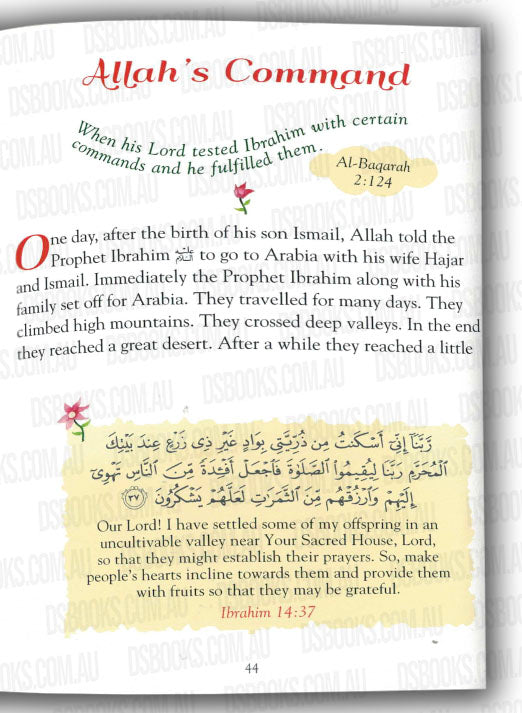 Allah's Command
When his Lord tested Ibrahim with certain
commands and he fulfilled them.
Al-Baqarah
2:124
One day, after the birth of his son Ismail, Allah told the
Prophet Ibrahim عليه السلام to go to Arabia with his wife Hajar
and Ismail. Immediately the Prophet Ibrahim along with his
family set off for Arabia. They travelled for many days. They
climbed high mountains. They crossed deep valleys. In the end
they reached a great desert. After a while they reached a little
رَّبَّنَا إِنِّي أَسْكَنتُ مِن ذُرِّيَّتِي بِوَادٍ غَيْرِ ذِي زَرْعٍ عِندَ بَيْتِكَ
الْمُحَرَّمِ رَبَّنَا لِيُقِيمُوا الصَّلَوٰةَ فَاجْعَلْ أَفْئِدَةً مِّنَ النَّاسِ تَهْوِي
إِلَيْهِمْ وَارْزُقْهُم مِّنَ الثَّمَرَٰتِ لَعَلَّهُمْ يَشْكُرُونَ ﴿٣٧﴾
Our Lord! I have settled some of my offspring in an
uncultivable valley near Your Sacred House, Lord,
so that they might establish their prayers. So, make
people's hearts incline towards them and provide them
with fruits so that they may be grateful.
Ibrahim 14:37
44
DSBOOKS.COM.AU